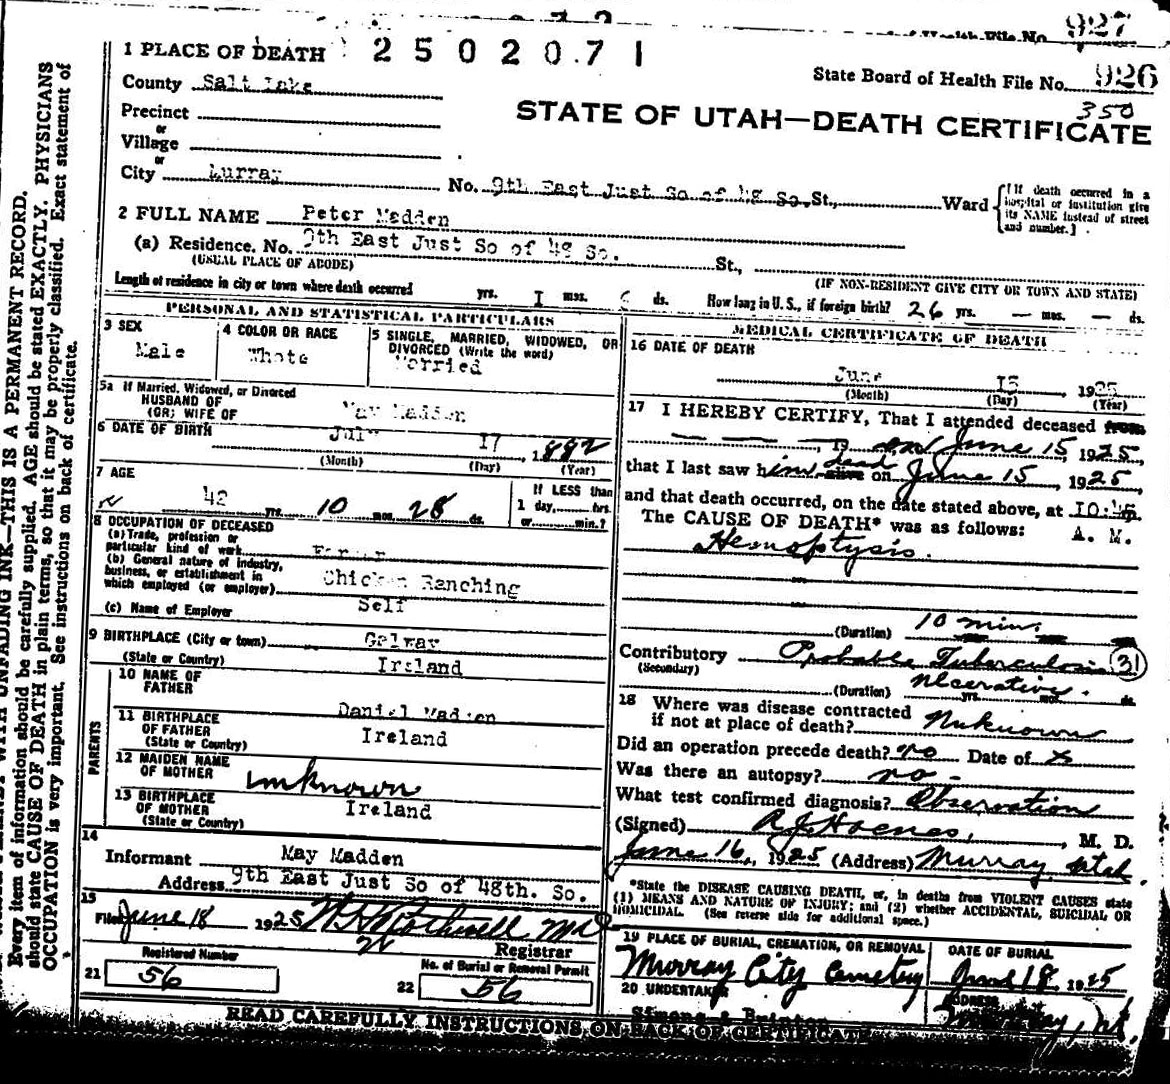 927
State Board of Health File No. 926
350
1 PLACE OF DEATH 2 5 0 2 0 7 1
STATE OF UTAH—DEATH CERTIFICATE
County Salt Lake
Precinct
or
Village
or
City Murray No. 9th East Just So of 48 So. St., Ward
[If death occurred in a hospital or institution give its NAME instead of street and number.]
2 FULL NAME Peter Madden
(a) Residence. No. 9th East Just So of 48 So. St.,
(USUAL PLACE OF ABODE) (IF NON-RESIDENT GIVE CITY OR TOWN AND STATE)
Length of residence in city or town where death occurred yrs. I mos. ds. How long in U. S., if foreign birth? 26 yrs. — mos. — ds.
PERSONAL AND STATISTICAL PARTICULARS
3 SEX
Male
4 COLOR OR RACE
Whote
5 SINGLE, MARRIED, WIDOWED, OR
DIVORCED (Write the word)
Morried
5a If Married, Widowed, or Divorced
HUSBAND OF
(OR) WIFE OF May Madden
6 DATE OF BIRTH July 17, 1882
(Month) (Day) (Year)
7 AGE
42 yrs. 10 mos. 28 ds.
If LESS than
1 day, hrs.
or min.?
8 OCCUPATION OF DECEASED
(a) Trade, profession or
particular kind of work Farmer
(b) General nature of industry,
business, or establishment in
which employed (or employer) Chicken Ranching
(c) Name of Employer Self
9 BIRTHPLACE (City or town) Galway
(State or Country) Ireland
PARENTS
10 NAME OF
FATHER Daniel Madden
11 BIRTHPLACE
OF FATHER Ireland
(State or Country)
12 MAIDEN NAME
OF MOTHER unknown
13 BIRTHPLACE
OF MOTHER Ireland
(State or Country)
14
Informant May Madden
Address 9th East Just So of 48th. So.
15
Filed June 18 1925
Registrar
Registered Number
21 56
No. of Burial or Removal Permit
22 56
MEDICAL CERTIFICATE OF DEATH
16 DATE OF DEATH
June 15 1925
(Month) (Day) (Year)
17 I HEREBY CERTIFY, That I attended deceased from
— — —, 19 on June 15 1925,
that I last saw him dead alive on June 15, 1925,
and that death occurred, on the date stated above, at 10:45 m.
The CAUSE OF DEATH* was as follows: A. M.
Hemoptysis.
(Duration) 10 min.
Contributory Probable Tuberculosis 31
(Secondary) Ulcerative.
(Duration) yrs. mos. ds.
18 Where was disease contracted
if not at place of death? Unknown
Did an operation precede death? no Date of x
Was there an autopsy? no -
What test confirmed diagnosis? Observation
(Signed) M. D.
June 16, 1925 (Address) Murray Utah.
*State the DISEASE CAUSING DEATH, or, in deaths from VIOLENT CAUSES state
(1) MEANS AND NATURE OF INJURY; and (2) whether ACCIDENTAL, SUICIDAL OR
HOMICIDAL. (See reverse side for additional space.)
19 PLACE OF BURIAL, CREMATION, OR REMOVAL
Murray City Cemetry
DATE OF BURIAL
June 18, 1925
20 UNDERTAKER
ADDRESS
Murray, Ut
READ CAREFULLY INSTRUCTIONS ON BACK OF CERTIFICATE
UNFADING INK—THIS IS A PERMANENT RECORD.
Every item of information should be carefully supplied. AGE should be stated EXACTLY. PHYSICIANS
should state CAUSE OF DEATH in plain terms, so that it may be properly classified. Exact statement of
OCCUPATION is very important. See instructions on back of certificate.